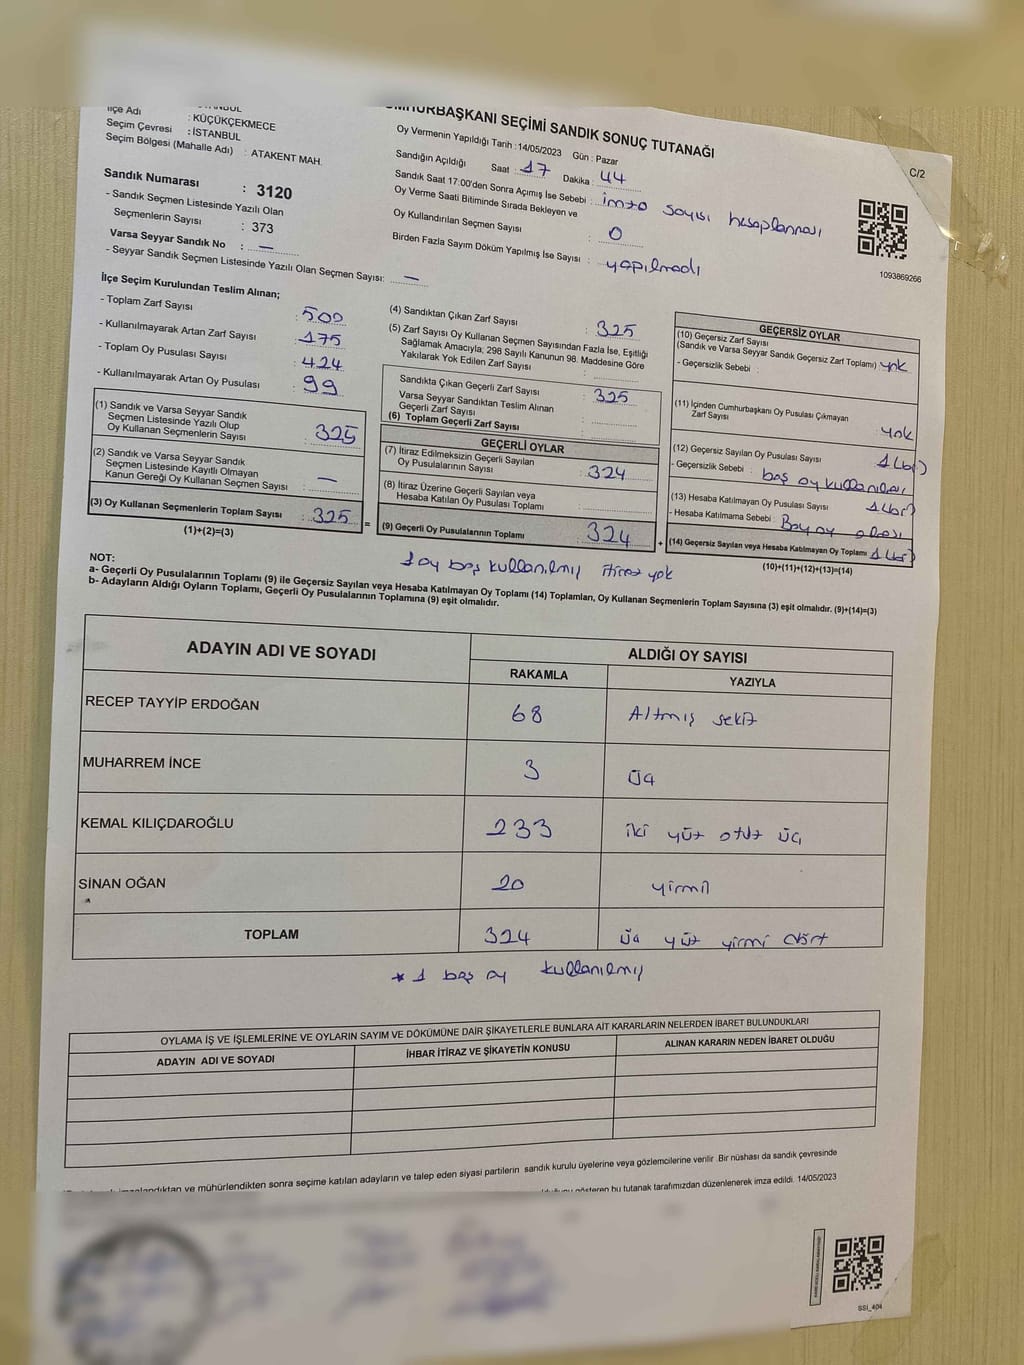 CUMHURBAŞKANI SEÇİMİ SANDIK SONUÇ TUTANAĞI
C/2
İlçe Adı : KÜÇÜKÇEKMECE
Seçim Çevresi : İSTANBUL
Seçim Bölgesi (Mahalle Adı) : ATAKENT MAH.
Sandık Numarası : 3120
- Sandık Seçmen Listesinde Yazılı Olan
Seçmenlerin Sayısı : 373
Varsa Seyyar Sandık No : —
- Seyyar Sandık Seçmen Listesinde Yazılı Olan Seçmen Sayısı: —
Oy Vermenin Yapıldığı Tarih : 14/05/2023 Gün : Pazar
Sandığın Açıldığı Saat : 17 Dakika : 44
Sandık Saat 17:00'den Sonra Açımış İse Sebebi : imza sayısı hesaplanması
Oy Verme Saati Bitiminde Sırada Bekleyen ve
Oy Kullandırılan Seçmen Sayısı : 0
Birden Fazla Sayım Döküm Yapılmış İse Sayısı : yapılmadı
1093869266
İlçe Seçim Kurulundan Teslim Alınan;
- Toplam Zarf Sayısı : 500
- Kullanılmayarak Artan Zarf Sayısı : 175
- Toplam Oy Pusulası Sayısı : 424
- Kullanılmayarak Artan Oy Pusulası : 99
(1) Sandık ve Varsa Seyyar Sandık
Seçmen Listesinde Yazılı Olup
Oy Kullanan Seçmenlerin Sayısı : 325
(2) Sandık ve Varsa Seyyar Sandık
Seçmen Listesinde Kayıtlı Olmayan
Kanun Gereği Oy Kullanan Seçmen Sayısı : —
(3) Oy Kullanan Seçmenlerin Toplam Sayısı : 325 =
(1)+(2)=(3)
(4) Sandıktan Çıkan Zarf Sayısı : 325
(5) Zarf Sayısı Oy Kullanan Seçmen Sayısından Fazla İse, Eşitliği
Sağlamak Amacıyla; 298 Sayılı Kanunun 98. Maddesine Göre
Yakılarak Yok Edilen Zarf Sayısı :
Sandıkta Çıkan Geçerli Zarf Sayısı : 325
Varsa Seyyar Sandıktan Teslim Alınan
Geçerli Zarf Sayısı :
(6) Toplam Geçerli Zarf Sayısı :
GEÇERLİ OYLAR
(7) İtiraz Edilmeksizin Geçerli Sayılan
Oy Pusulalarının Sayısı : 324
(8) İtiraz Üzerine Geçerli Sayılan veya
Hesaba Katılan Oy Pusulası Toplamı :
(9) Gecerli Oy Pusulalarının Toplamı : 324 +
GEÇERSİZ OYLAR
(10) Geçersiz Zarf Sayısı
(Sandık ve Varsa Seyyar Sandık Geçersiz Zarf Toplamı) yok
- Geçersizlik Sebebi :
(11) İçinden Cumhurbaşkanı Oy Pusulası Çıkmayan
Zarf Sayısı : yok
(12) Geçersiz Sayılan Oy Pusulası Sayısı : 1 (bir)
- Geçersizlik Sebebi : boş oy kullanılası
(13) Hesaba Katılmayan Oy Pusulası Sayısı : 1 (bir)
- Hesaba Katılmama Sebebi : Boş oy olması
(14) Geçersiz Sayılan veya Hesaba Katılmayan Oy Toplamı 1 (bir)
(10)+(11)+(12)+(13)=(14)
1 oy boş kullanılmış itiraz yok
NOT:
a- Geçerli Oy Pusulalarının Toplamı (9) ile Geçersiz Sayılan veya Hesaba Katılmayan Oy Toplamı (14) Toplamları, Oy Kullanan Seçmenlerin Toplam Sayısına (3) eşit olmalıdır. (9)+(14)=(3)
b- Adayların Aldığı Oyların Toplamı, Geçerli Oy Pusulalarının Toplamına (9) eşit olmalıdır.
ADAYIN ADI VE SOYADI ALDIĞI OY SAYISI
RAKAMLA YAZIYLA
RECEP TAYYİP ERDOĞAN 68 Altmış sekiz
MUHARREM İNCE 3 üç
KEMAL KILIÇDAROĞLU 233 iki yüz otuz üç
SİNAN OĞAN 20 yirmi
TOPLAM 324 üç yüz yirmi dört
* 1 boş oy kullanılmış
OYLAMA İŞ VE İŞLEMLERİNE VE OYLARIN SAYIM VE DÖKÜMÜNE DAİR ŞİKAYETLERLE BUNLARA AİT KARARLARIN NELERDEN İBARET BULUNDUKLARI
ADAYIN ADI VE SOYADI İHBAR İTİRAZ VE ŞİKAYETİN KONUSU ALINAN KARARIN NEDEN İBARET OLDUĞU
imzalandıktan ve mühürlendikten sonra seçime katılan adayların ve talep eden siyasi partilerin sandık kurulu üyelerine veya gözlemcilerine verilir .Bir nüshası da sandık çevresinde
gösteren bu tutanak tarafımızdan düzenlenerek imza edildi. 14/05/2023
SSI_404